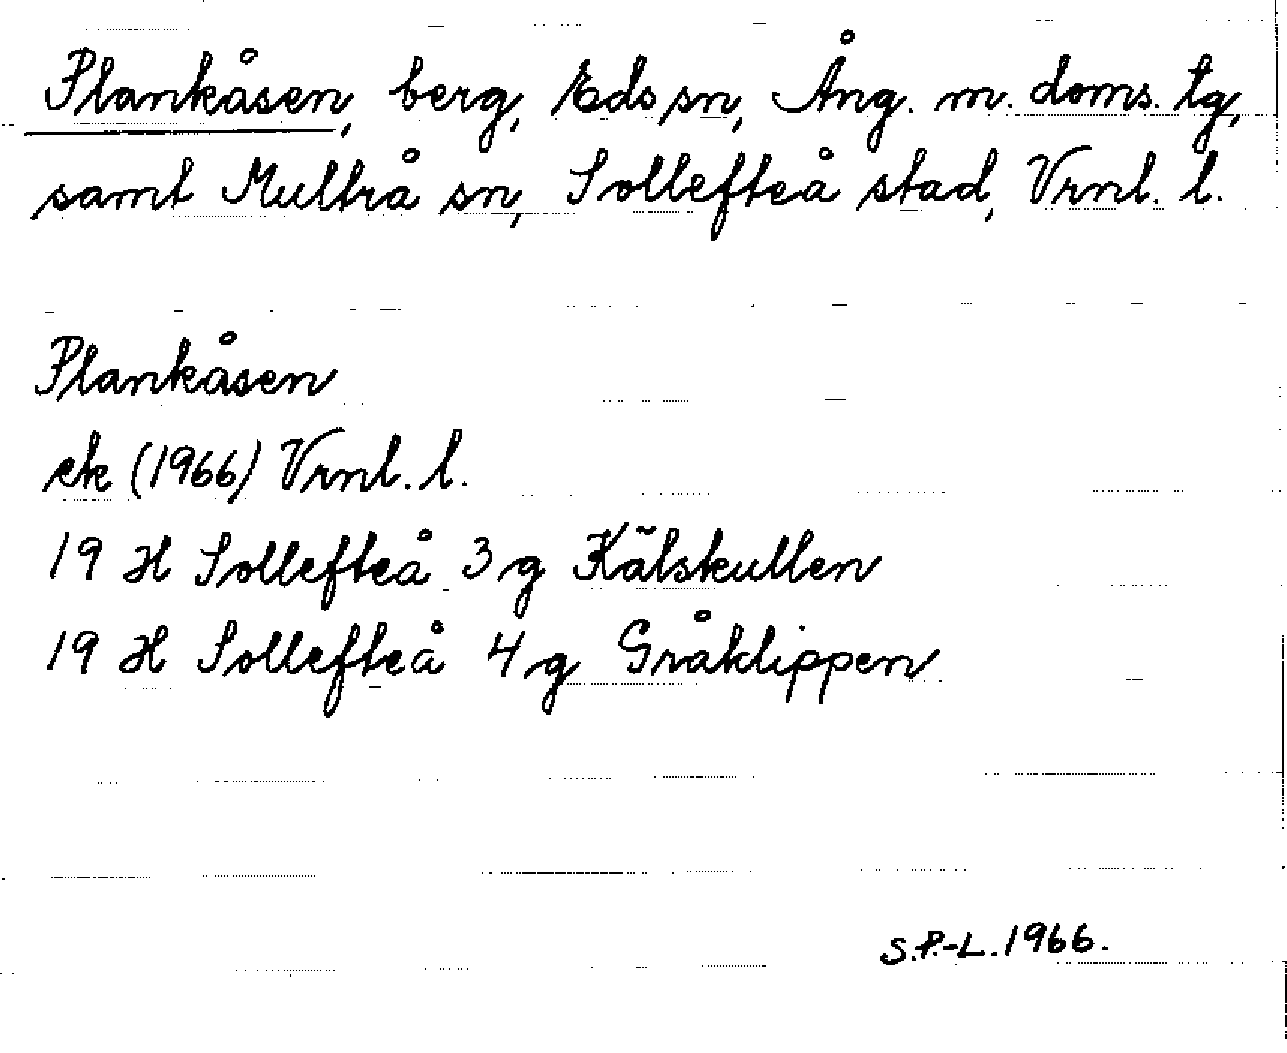 Plankåsen, berg, Eds sn, Ång. m. doms. tg,
samt Multrå sn, Sollefteå stad, Vrnl. l.
Plankåsen
ek (1966) Vrnl. l.
19 H Sollefteå 3 g Kälskullen
19 H Sollefteå 4 g Gråklippen
S.P.-L. 1966.